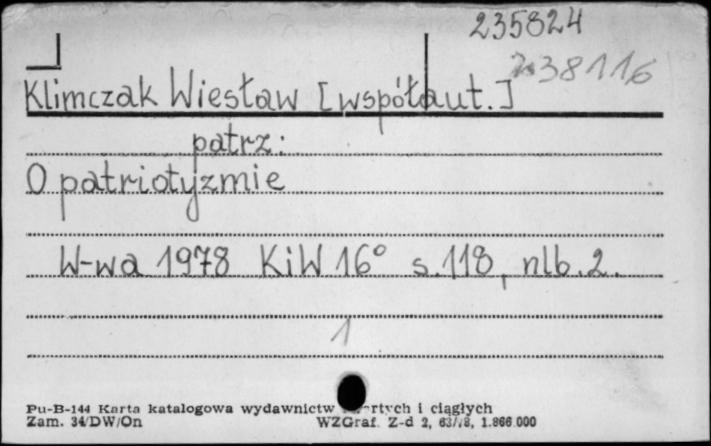 235824
238116
Klimczak Wiesław [współaut.]
patrz:
O patriotyzmie
W-wa 1978 KiW 16° s.118, nlb.2.
1
Pu-B-144 Karta katalogowa wydawnictw i ciągłych
Zam. 34/DW/On WZGraf. Z-d 2, 1.866.000